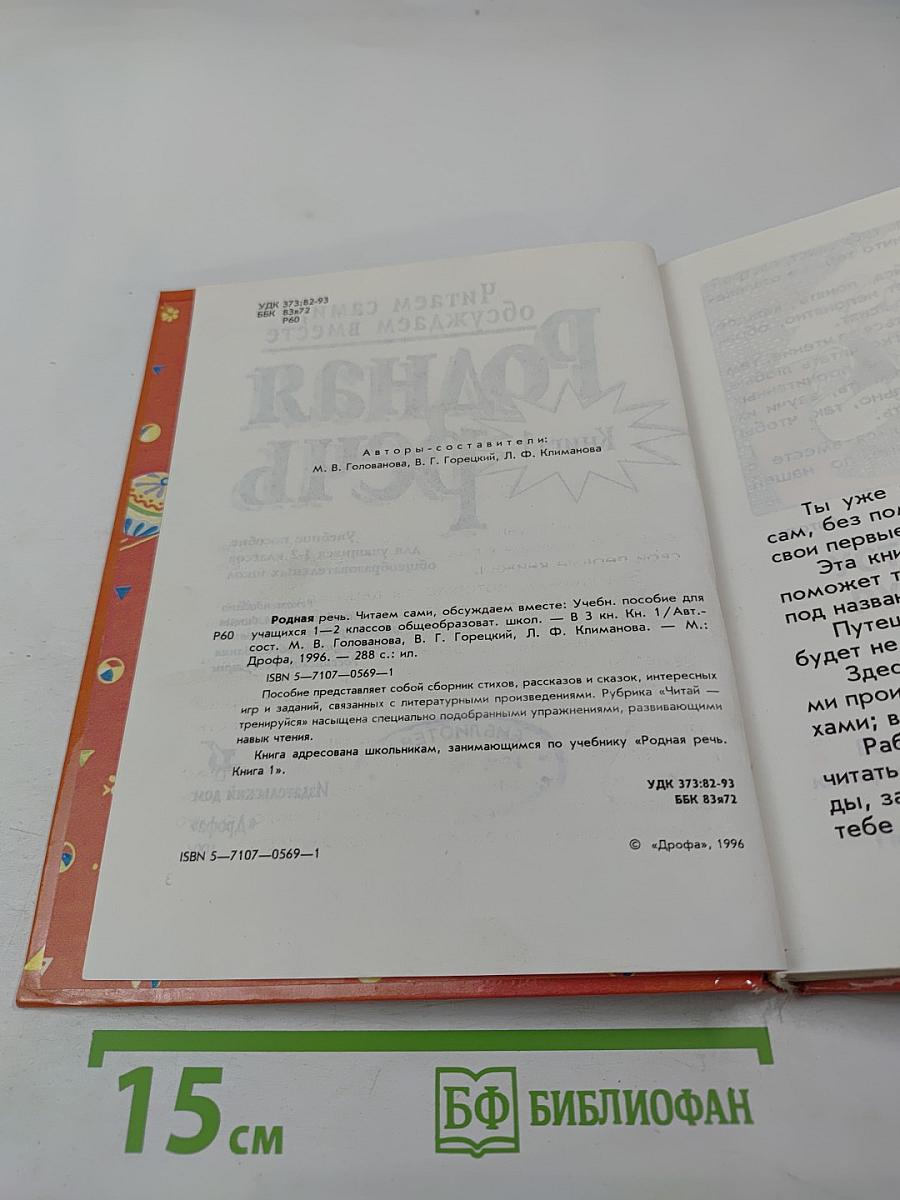 УДК 373:82-93
ББК 83я72
Р60
Авторы-составители:
М. В. Голованова, В. Г. Горецкий, Л. Ф. Климанова
Родная речь. Читаем сами, обсуждаем вместе: Учебн. пособие для
Р60 учащихся 1—2 классов общеобразоват. школ. — В 3 кн. Кн. 1/Авт.-
сост. М. В. Голованова, В. Г. Горецкий, Л. Ф. Климанова. — М.:
Дрофа, 1996. — 288 с.: ил.
ISBN 5—7107—0569—1
Пособие представляет собой сборник стихов, рассказов и сказок, интересных
игр и заданий, связанных с литературными произведениями. Рубрика «Читай —
тренируйся» насыщена специально подобранными упражнениями, развивающими
навык чтения.
Книга адресована школьникам, занимающимся по учебнику «Родная речь.
Книга 1».
УДК 373:82-93
ББК 83я72
ISBN 5—7107—0569—1
© «Дрофа», 1996
Ты уже
сам, без
свои первые
Эта
поможет
под
Путеш
будет не
Здес
ми
хами;
читать
ды,
тебе
15 см
БФ БИБЛИОФАН